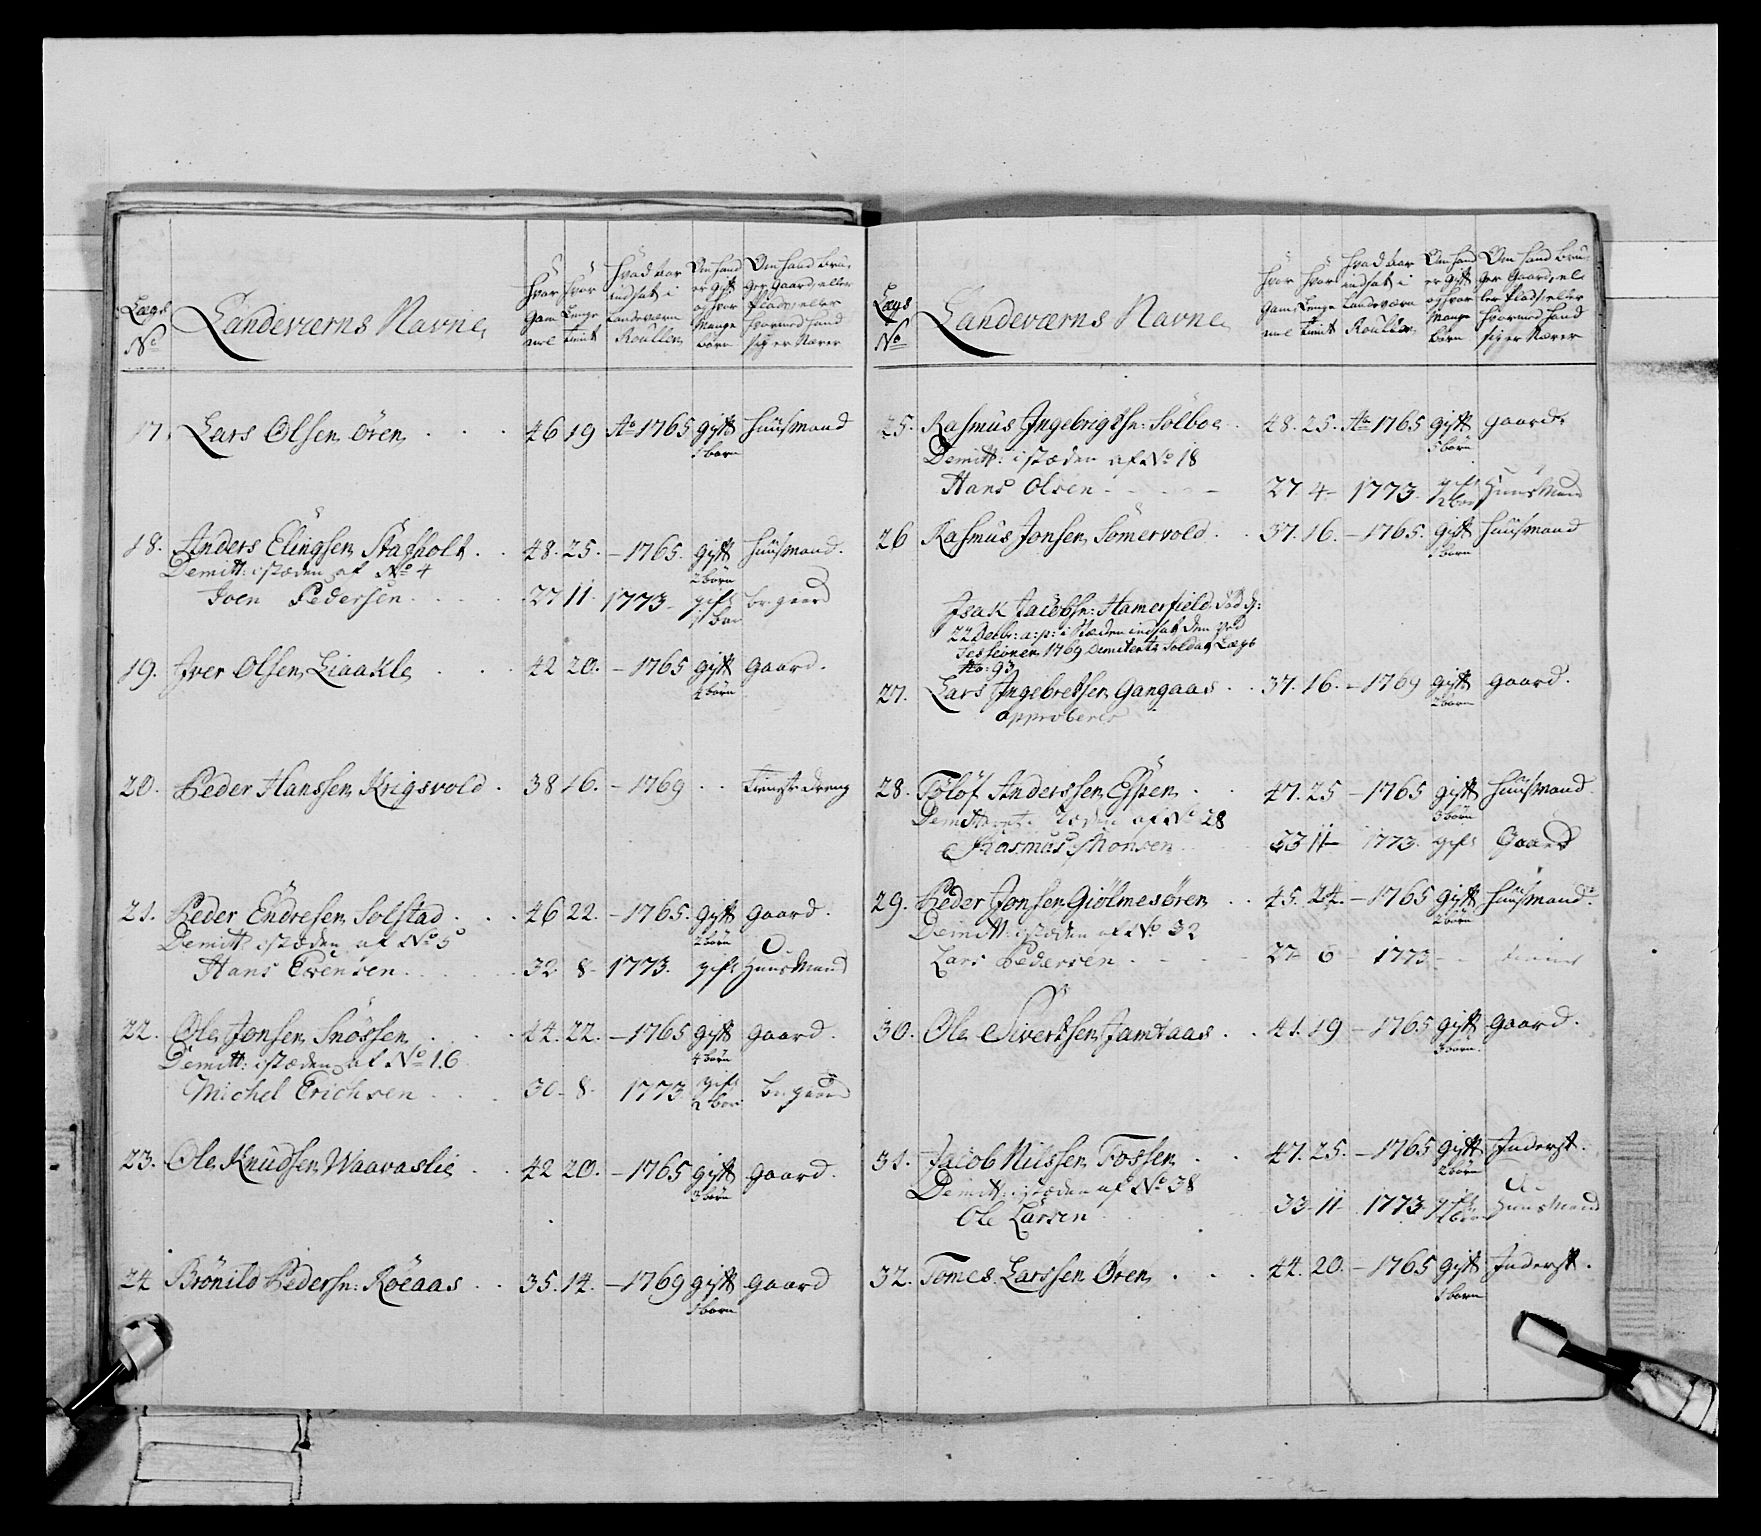 Lægs No
Landeværns Navne
Hvor Gam mel
Hvor Lenge tient
Hvad aar indsat i Landeværn Roullen
Om hand er gift og hvor Mange børn
Om hand bru, ger Gaard, eller Plads, eller hvormed hand sig er Nærer
17. Lars Olsen Ören 46 19 Ao 1765 gift huusmand
5 børn
18. Anders Elingsen Stafholt 48. 25. - 1765. gift huusmand.
Demitt: i stæden af No 4 2 børn
Joen Pedersen 27 11. 1773 gift br. gaard
19. Iver Olsen Liaakle 42 20. - 1765 gift gaard.
4 børn
20. Peder Hanssen Krigsvold 38 16. - 1769 tieneste dreng
21. Peder Endresen Solstad 46 22. - 1765. gift gaard.
Demitt i stæden af No 5 2 børn
Hans Evensen 32 8 - 1773. gift Huusmand
22. Ole Jonsen Snössen 44. 22. - 1765 gift gaard.
Demitt: i stæden af No 16 4 børn
Michel Erichsen 30 - 8 - 1773 gift br. gaard
2 bør
23. Ole Knudsen Waavaslie 42 20. - 1765 gift gaard.
3 børn
24 Brönild Pedersn: Röeaas 35. 14. - 1769 gift gaard
5 børn
Lægs No
Landeværns Navne
Hvor Gam, mel
Hvor Lenge tient
Hvad aar indsat i Landeværn Roullen
Om hand er gift og hvor Mange børn
Om hand bru, ger Gaard, el ler Plads, eller hvormed hand sig er Nærer
25. Rasmus Ingebrigtsn: Solboe 48. 25. Ao 1765 gift gaard.
Demitt: i stæden af No 18 5 børn
Hans Olsen 27. 4 - 1773. gift Huusmand
26 Rasmus Jonsen Sömervold 37. 16. - 1765. gift huusmand
børn
Isak Jacobsn: Hamerfield död d:
22 Decbr: a: p: i Stæden indsat den ved
Sessionen 1769 Demiterte Soldat Lægs
No: 93
27. Lars Ingebretsen Gangaas 37. 16. - 1769 gift gaard.
approberes 2 børn
28. Toløf Anderssen Espen 47. 25 - 1765 gift huusmand.
3 børn
af No 28
Rasmus Monsen 33 11 - 1773. gift Gaard
29. Peder Jonsen Giölmesören 45. 24. - 1765 gift huusmand.
Demitt: i stæden af No 32 2 børn
Lars Pedersen 27 - 6 - 1773
30. Ole Sivertsen Jamtaas 41. 19 - 1765 gift gaard.
3 børn.
31. Jacob Nilssen Fossen 47. 25. - 1765 gift Inderst.
Demitt: i stæden af No 38 2 børn
Ole Larsen 33 - 11 - 1773 gift Huusmand
32. Tomes Larssen Ören 44. 20. - 1765 gift Inderst.
5 børn